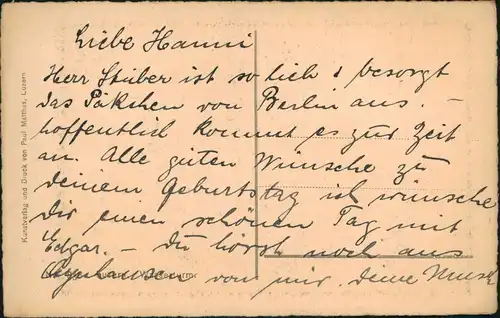 Liebe Hanni
Herr Stuber ist so lieb & besorgt
das Päkchen von Berlin aus. –
hoffentlich kommt es zur Zeit
an. Alle guten Wünsche zu
deinem Geburtstag ich wünsche
dir einen schönen Tag mit
Edgar. – Du hörst noch aus
Oeynhausen von mir. Deine
Kunstverlag und Druck von Paul Matthes, Luzern